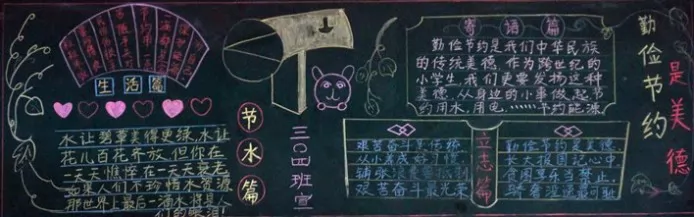 生活篇
水让碧草美得更绿,水让
花儿百花齐放,但你在
一天天憔悴在一天天衰老
如果人们不珍惜水资源
那世界上最后一滴水将是人
们的眼泪
节水篇
三〇四班宣
寄语篇
勤俭节约是我们中华民族
的传统美德,作为跨世纪的
小学生,我们更要发扬这种
美德,从身边的小事做起节
约用水,用电……节约能源
艰苦奋斗是传统
从小养成好习惯
艰苦奋斗最光荣
立志篇
勤俭节约是美德
长大报国记心中
贪图享乐当禁止
骄奢淫逸最可耻
勤俭节约
是美德